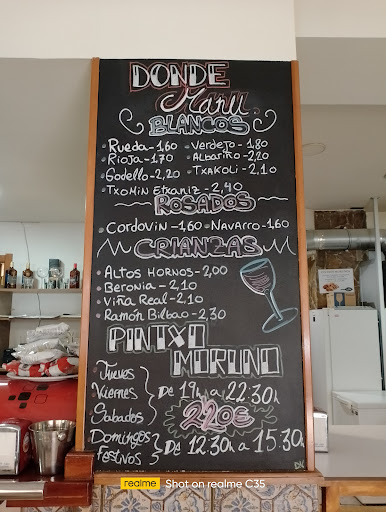 DONDE
Manu
BLANCOS
Rueda-1,60 Verdejo-1,80
Rioja-1,70 Albariño-2,20
Godello-2,20 Txakoli-2,10
Txomin Etxaniz-2,40
ROSADOS
Cordovin-1,60 Navarro-1,60
CRIANZAS
Altos Hornos-2,00
Beronia-2,10
Viña Real-2,10
Ramón Bilbao-2,30
PINTXO
MORUNO
Jueves
Viernes De 19h a 22:30h
Sabados 2,20€
Domingos
festivos De 12:30h a 15:30h
DK
realme Shot on realme C35